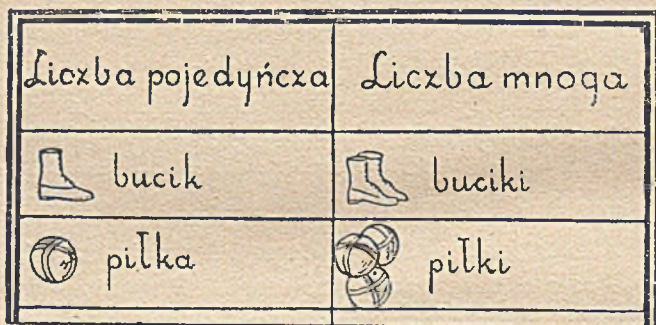 Liczba pojedyńcza Liczba mnoga
bucik buciki
piłka piłki